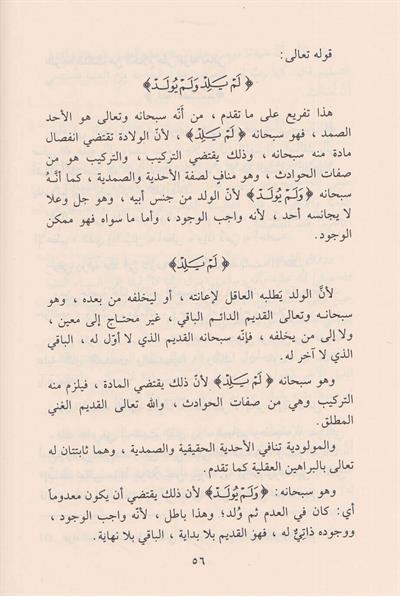 قوله تعالى:
﴿لَمْ يَلِدْ وَلَمْ يُولَدْ﴾
هذا تفريع على ما تقدم ، من أنَّه سبحانه وتعالى هو الأحد
الصمد ، فهو سبحانه ﴿لَمْ يَلِدْ﴾ ، لأنّ الولادة تقتضي انفصال
مادة منه سبحانه ، وذلك يقتضي التركيب ، والتركيب هو من
صفات الحوادث ، وهو منافٍ لصفة الأحدية والصمدية ، كما أنَّهُ
سبحانه ﴿وَلَمْ يُولَدْ﴾ لأنّ الولد من جنس أبيه ، وهو جل وعلا
لا يجانسه أحد ، لأنه واجب الوجود ، وأما ما سواه فهو ممكن
الوجود.
﴿لَمْ يَلِدْ﴾
لأنَّ الولد يَطلبه العاقل لإعانته ، أو ليخلفه من بعده ، وهو
سبحانه وتعالى القديم الدائم الباقي ، غير محتاج إلى معين ،
ولا إلى من يخلفه ، فإنّه سبحانه القديم الذي لا أوّل له ، الباقي
الذي لا آخر له.
وهو سبحانه ﴿لَمْ يَلِدْ﴾ لأنّ ذلك يقتضي المادة ، فيلزم منه
التركيب وهي من صفات الحوادث ، والله تعالى القديم الغني
المطلق.
والمولودية تنافي الأحدية الحقيقية والصمدية ، وهما ثابتتان له
تعالى بالبراهين العقلية كما تقدم.
وهو سبحانه: ﴿وَلَمْ يُولَدْ﴾ لأن ذلك يقتضي أن يكون معدوماً
أي: كان في العدم ثم وُلد؛ وهذا باطل ، لأنّه واجب الوجود ،
ووجوده ذاتِيٌّ له ، فهو القديم بلا بداية ، الباقي بلا نهاية.
٥٦